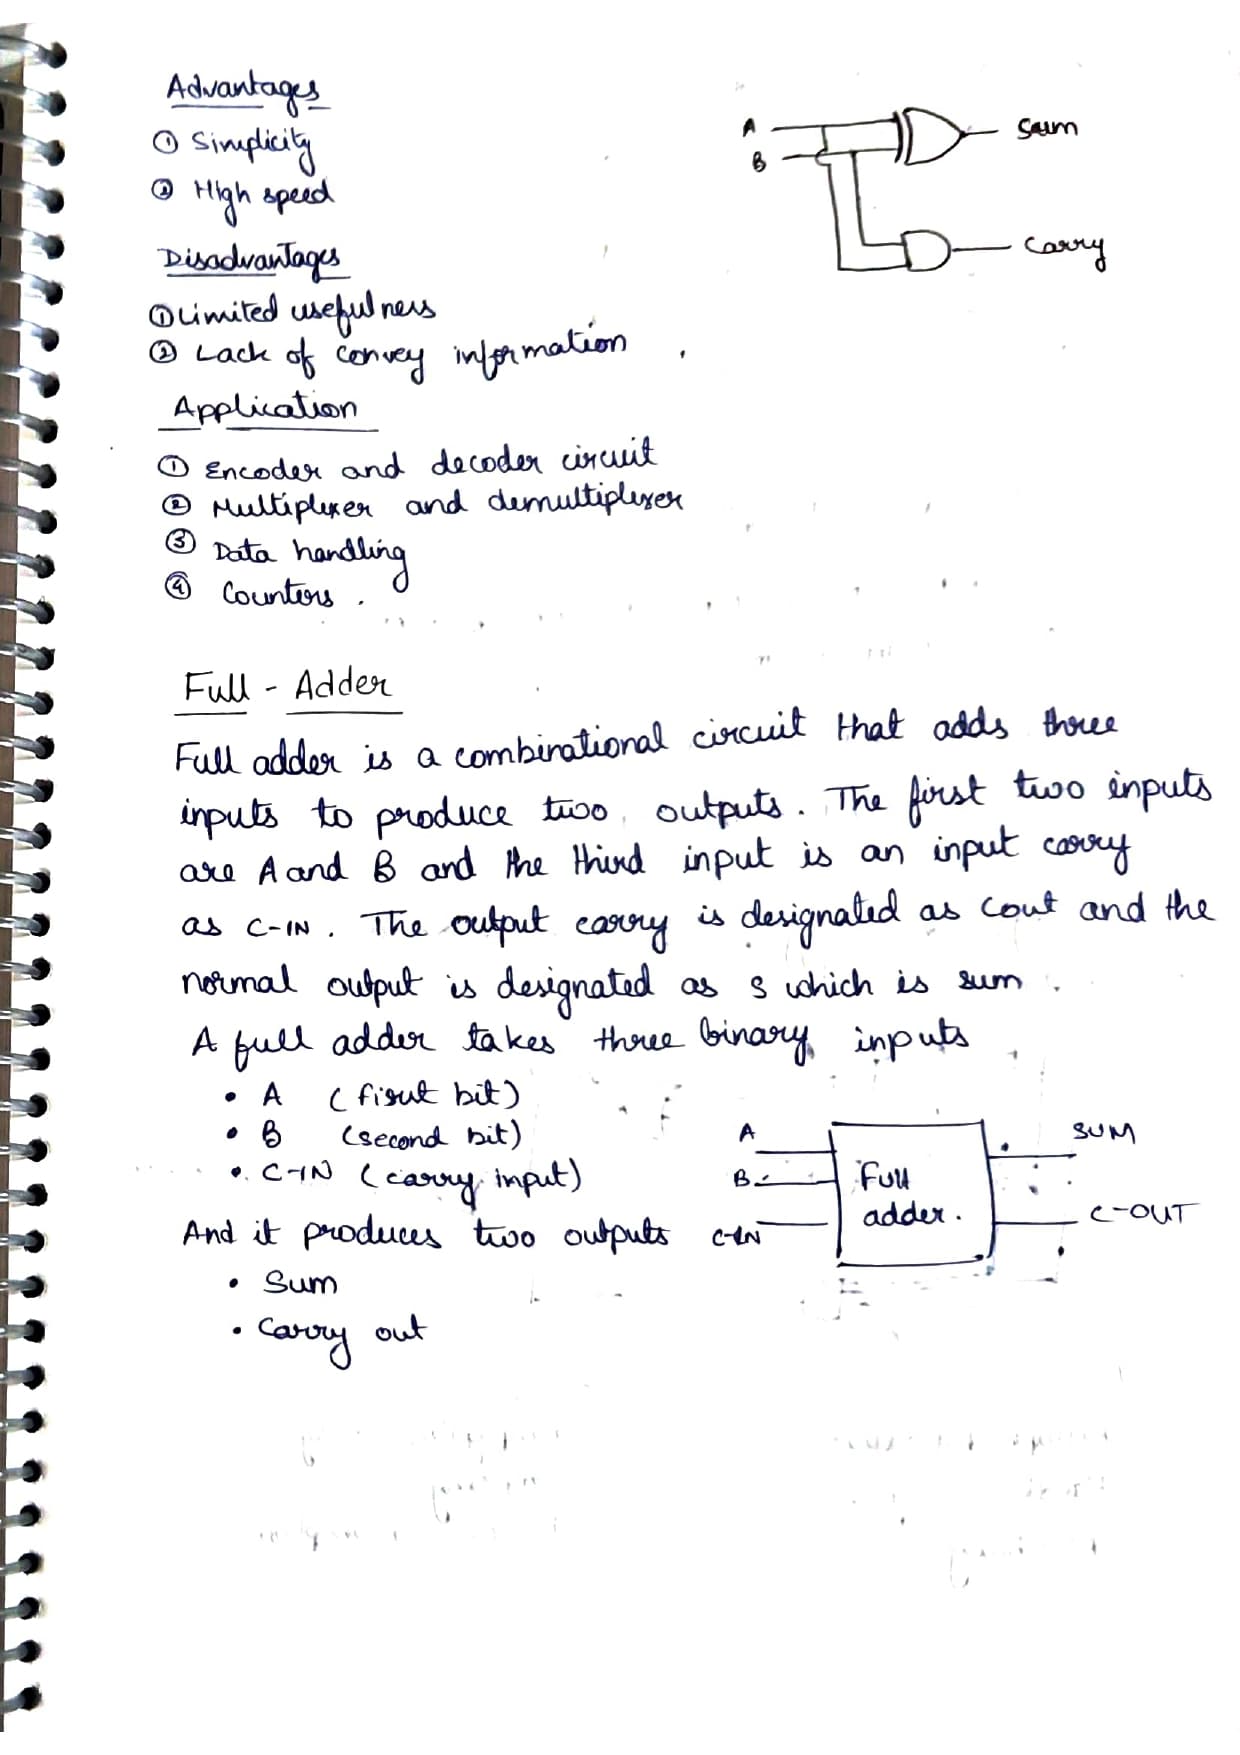 Advantages
① Simplicity
② High speed
Disadvantages
① Limited usefulness
② Lack of convey information
Application
① Encoder and decoder circuit
② Multiplexer and demultiplexer
③ Data handling
④ Counters.
A
B
Sum
Carry
Full - Adder
Full adder is a combinational circuit that adds three
inputs to produce two outputs. The first two inputs
are A and B and the third input is an input carry
as C-IN. The output carry is designated as Cout and the
normal output is designated as S which is sum.
A full adder takes three binary inputs
• A (first bit)
• B (second bit)
• C-IN (carry input)
And it produces two outputs
• Sum
• Carry out
A
B
C-IN
Full
adder.
SUM
C-OUT